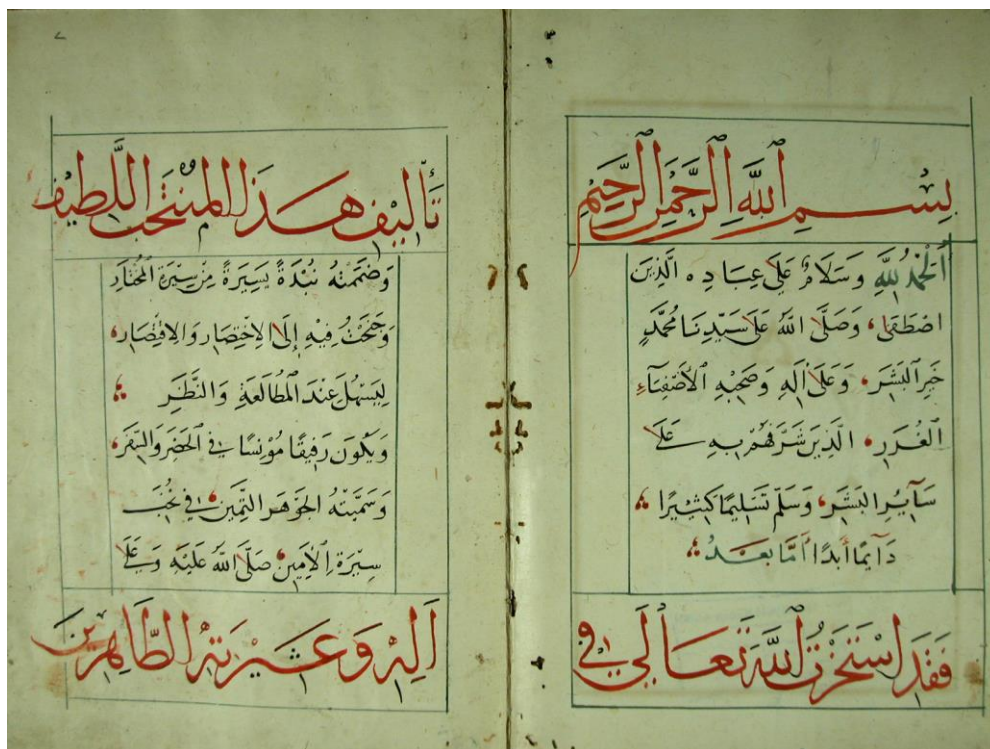 بِسْمِ ٱللَّهِ ٱلرَّحْمٰنِ ٱلرَّحِيمِ
اَلْحَمْدُ لِلَّهِ وَسَلَامٌ عَلَى عِبَادِهِ الَّذِينَ
اصْطَفَى، وَصَلَّى اللَّهُ عَلَى سَيِّدِنَا مُحَمَّدٍ
خَيْرِ الْبَشَرِ، وَعَلَى اٰلِهِ وَصَحْبِهِ الْأَصْفِيَآءِ
الْغُرَرِ، الَّذِينَ شَرَّفَهُمْ بِهِ عَلَى
سَآيِرِ الْبَشَرِ، وَسَلَّمَ تَسْلِيمًا كَثِيرًا
دَآيِمًا أَبَدًا اَمَّا بَعْدُ
فَقَدِ اسْتَخَرْتُ ٱللَّهَ تَعَالَى فِي
تَأْلِيفِ هَذَا الْمُنْتَخَبِ اللَّطِيفِ
وَضَمَّنْتُهُ نُبْذَةً يَسِيرَةً مِنْ سِيرَةِ الْمُخْتَارِ
وَجَنَحْتُ فِيهِ إِلَى الْاِخْتِصَارِ وَالْاِقْتِصَارِ،
لِيَسْهُلَ عِنْدَ الْمُطَالَعَةِ وَالنَّظَرِ
وَيَكُونَ رَفِيقًا مُؤْنِسًا فِي الْحَضَرِ وَالسَّفَرِ،
وَسَمَّيْتُهُ الْجَوْهَرَ الثَّمِينَ، فِي نُخَبِ
سِيرَةِ الْأَمِينِ، صَلَّى اللَّهُ عَلَيْهِ وَعَلَى
اٰلِهِ وَعِتْرَتِهِ الطَّاهِرِينَ